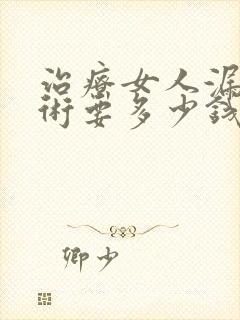 治療女人漏
術要多少錢
卿少